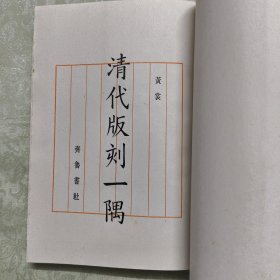 黃裳
清代版刻一隅
齊魯書社